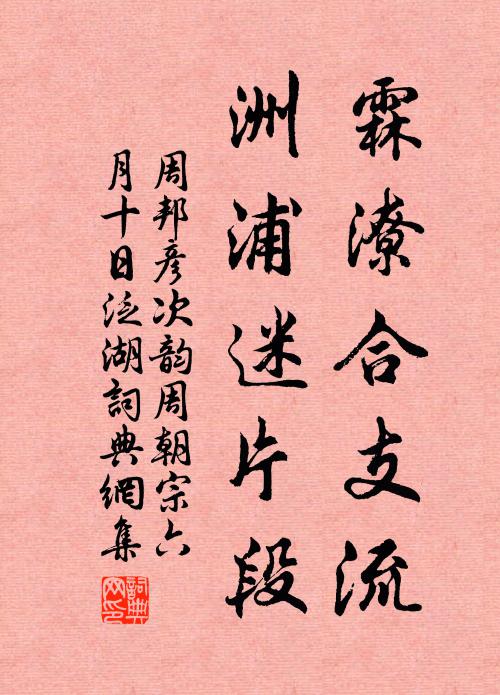 霖潦合支流
洲浦迷片段
周邦彥次韵周朝宗六
月十日泛湖詞典網集
詞典
网印